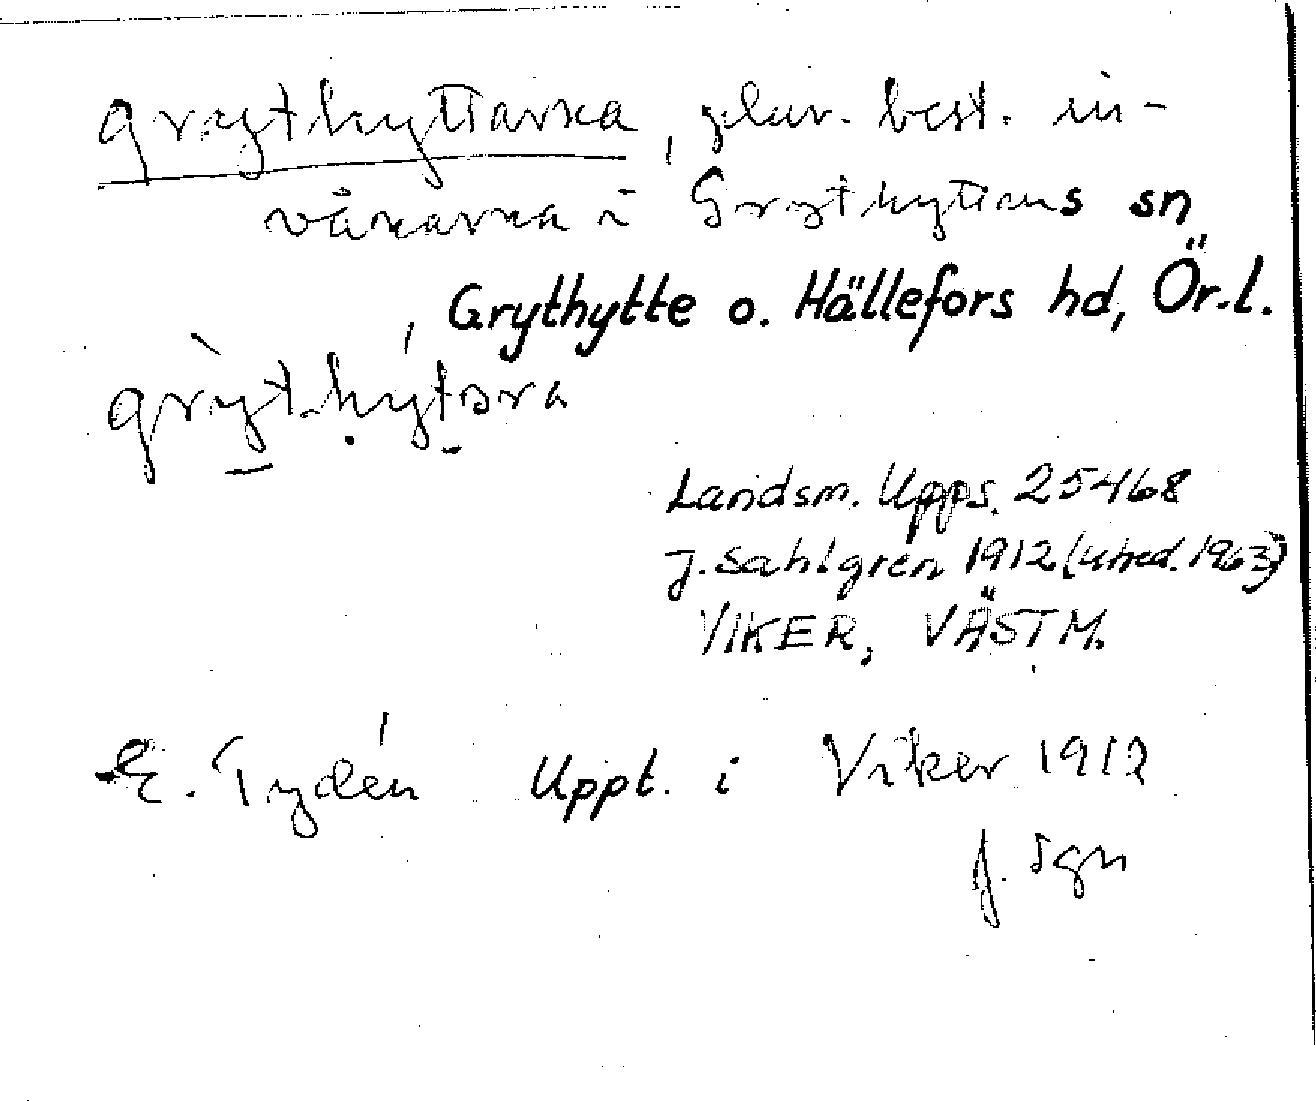 grythyttarna, plur. best. in-
vånarna i Grythyttans sn
Grythytte o. Hällefors hd, Ör.l.
Landsm. Upps. 25468
J. Sahlgren 1912 (utred. 1963)
VIKER, VÄSTM.
E. Tydén Uppt. i Viker 1912
J. Sgn